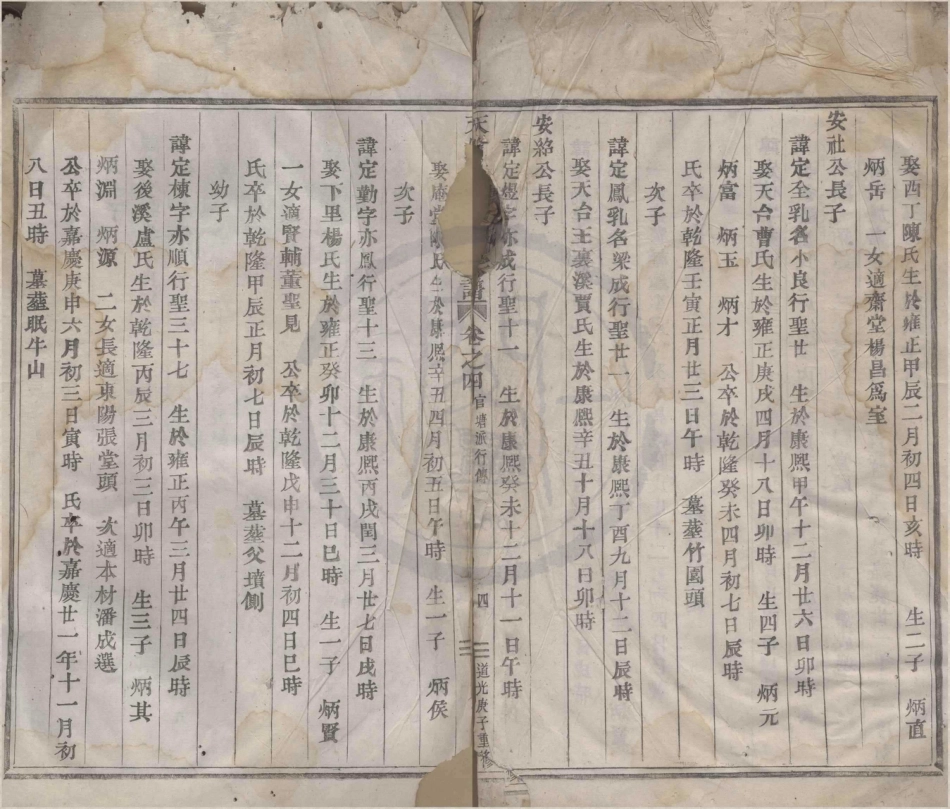 娶西丁陳氏生於雍正甲辰二月初四日亥時 生二子 炳直
炳岳 一女適齋堂楊昌爲室
安社公長子
諱定全乳名小良行聖廿 生於康熙甲午十二月廿六日卯時
娶天台曹氏生於雍正庚戌四月十八日卯時 生四子 炳元
炳富 炳玉 炳才 公卒於乾隆癸未四月初七日辰時
氏卒於乾隆壬寅正月廿三日午時 墓塟竹園頭
次子
諱定鳳乳名樂成行聖廿一 生於康熙丁酉九月十二日辰時
娶天台王裏溪賈氏生於康熙辛丑十月十八日卯時
安絡公長子
諱定 字亦成行聖十一 生於康熙癸未十二月十一日午時
天 譜 卷之四 官塘派行傳 四 道光庚子重修
娶 堂 氏生於康熙辛丑四月初五日午時 生一子 炳侯
次子
諱定勤字亦鳳行聖十三 生於康熙丙戌閏三月廿七日戌時
娶下里楊氏生於雍正癸卯十二月三十日巳時 生一子 炳賢
一女適賢輔董聖見 公卒於乾隆戊申十二月初四日巳時
氏卒於乾隆甲辰正月初七日辰時 墓塟父墳側
幼子
諱定棟字亦順行聖三十七 生於雍正丙午三月廿四日辰時
娶後溪盧氏生於乾隆丙辰三月初三日卯時 生三子 炳其
炳淵 炳源 二女長適東陽張堂頭 次適本材潘成選
公卒於嘉慶庚申六月初三日寅時 氏卒於嘉慶廿一年十一月初
八日丑時 墓塟眠牛山